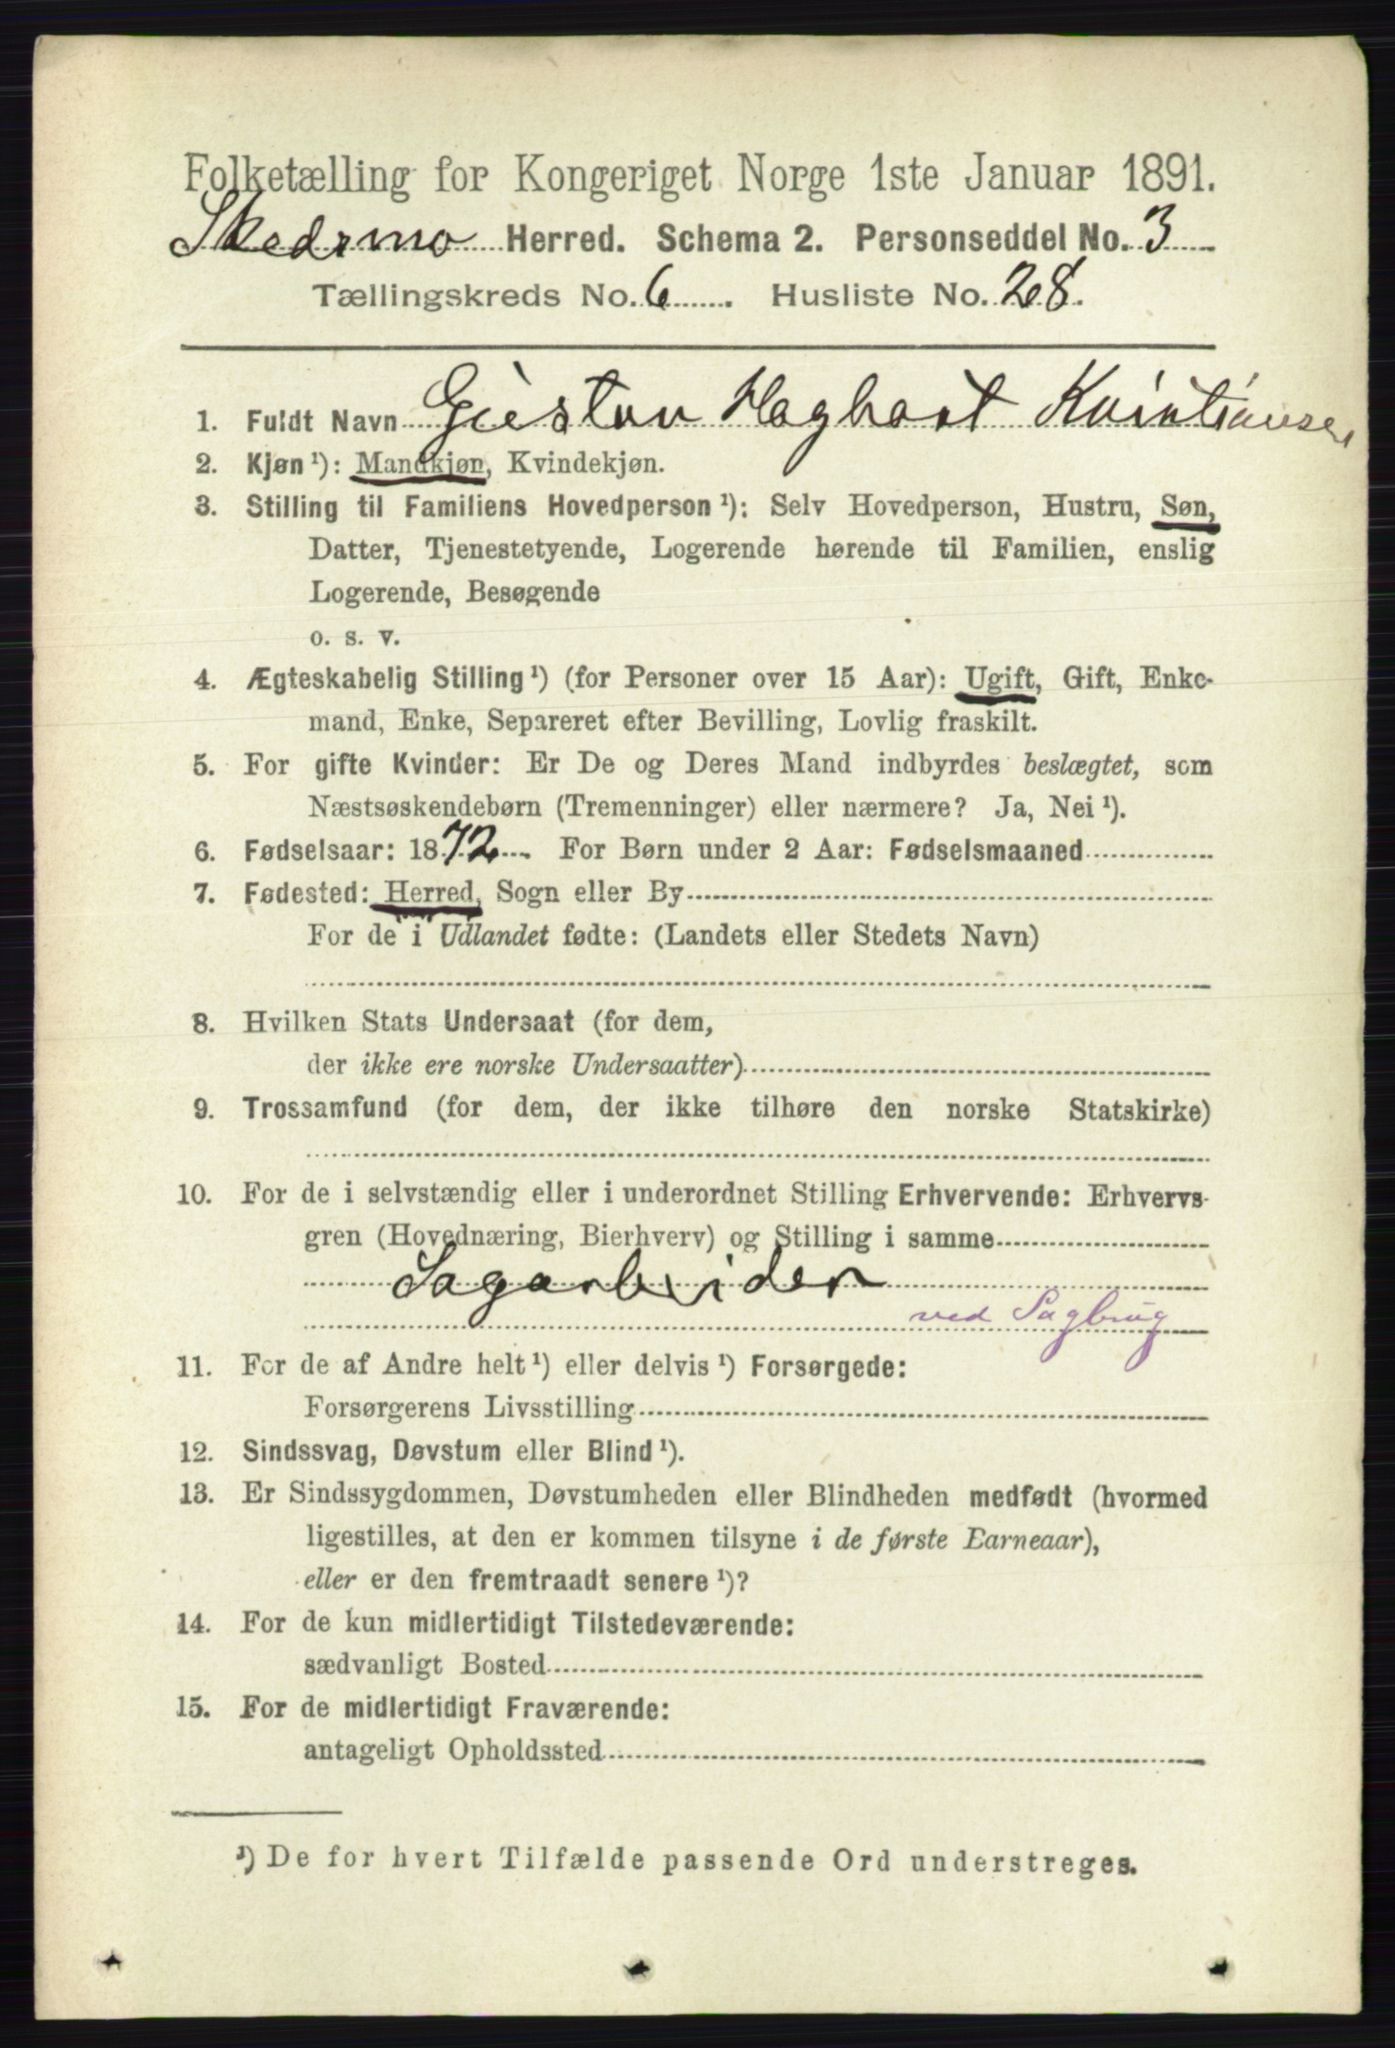 Folketælling for Kongeriget Norge 1ste Januar 1891.
Skedsmo Herred. Schema 2. Personseddel No. 3
Tællingskreds No. 6. Husliste No. 28.
1. Fuldt Navn Gustav Hagbart Kristiansen
2. Kjøn¹): Mandkjøn, Kvindekjøn.
3. Stilling til Familiens Hovedperson¹): Selv Hovedperson, Hustru, Søn,
Datter, Tjenestetyende, Logerende hørende til Familien, enslig
Logerende, Besøgende
o. s. v.
4. Ægteskabelig Stilling¹) (for Personer over 15 Aar): Ugift, Gift, Enke-
mand, Enke, Separeret efter Bevilling, Lovlig fraskilt.
5. For gifte Kvinder: Er De og Deres Mand indbyrdes beslægtet, som
Næstsøskendebørn (Tremenninger) eller nærmere? Ja, Nei¹).
6. Fødselsaar: 1872. For Børn under 2 Aar: Fødselsmaaned
7. Fødested: Herred, Sogn eller By
For de i Udlandet fødte: (Landets eller Stedets Navn)
8. Hvilken Stats Undersaat (for dem,
der ikke ere norske Undersaatter)
9. Trossamfund (for dem, der ikke tilhøre den norske Statskirke)
10. For de i selvstændig eller i underordnet Stilling Erhvervende: Erhvervs-
gren (Hovednæring, Bierhverv) og Stilling i samme
Sagarbeider
ved Sagbrug
11. For de af Andre helt¹) eller delvis¹) Forsørgede:
Forsørgerens Livsstilling
12. Sindssvag, Døvstum eller Blind¹).
13. Er Sindssygdommen, Døvstumheden eller Blindheden medfødt (hvormed
ligestilles, at den er kommen tilsyne i de første Barneaar),
eller er den fremtraadt senere¹)?
14. For de kun midlertidigt Tilstedeværende:
sædvanligt Bosted
15. For de midlertidigt Fraværende:
antageligt Opholdssted
¹) De for hvert Tilfælde passende Ord understreges.